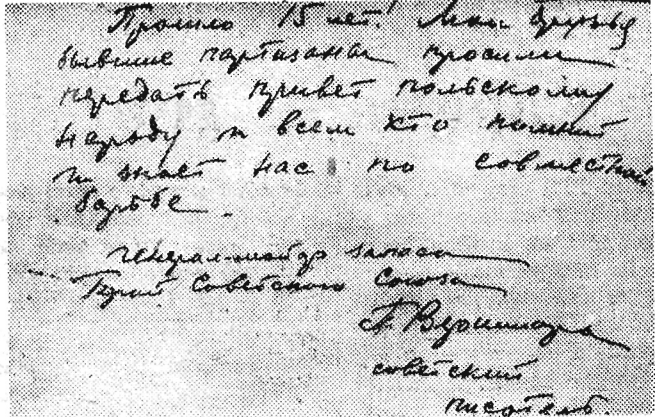 Прошло 15 лет! Мои друзья
бывшие партизаны просили
передать привет польскому
народу и всем кто помнит
и знает нас по совместной
борьбе.
Генерал-майор запаса
Герой Советского Союза
П. Вершигора
советский
писатель.